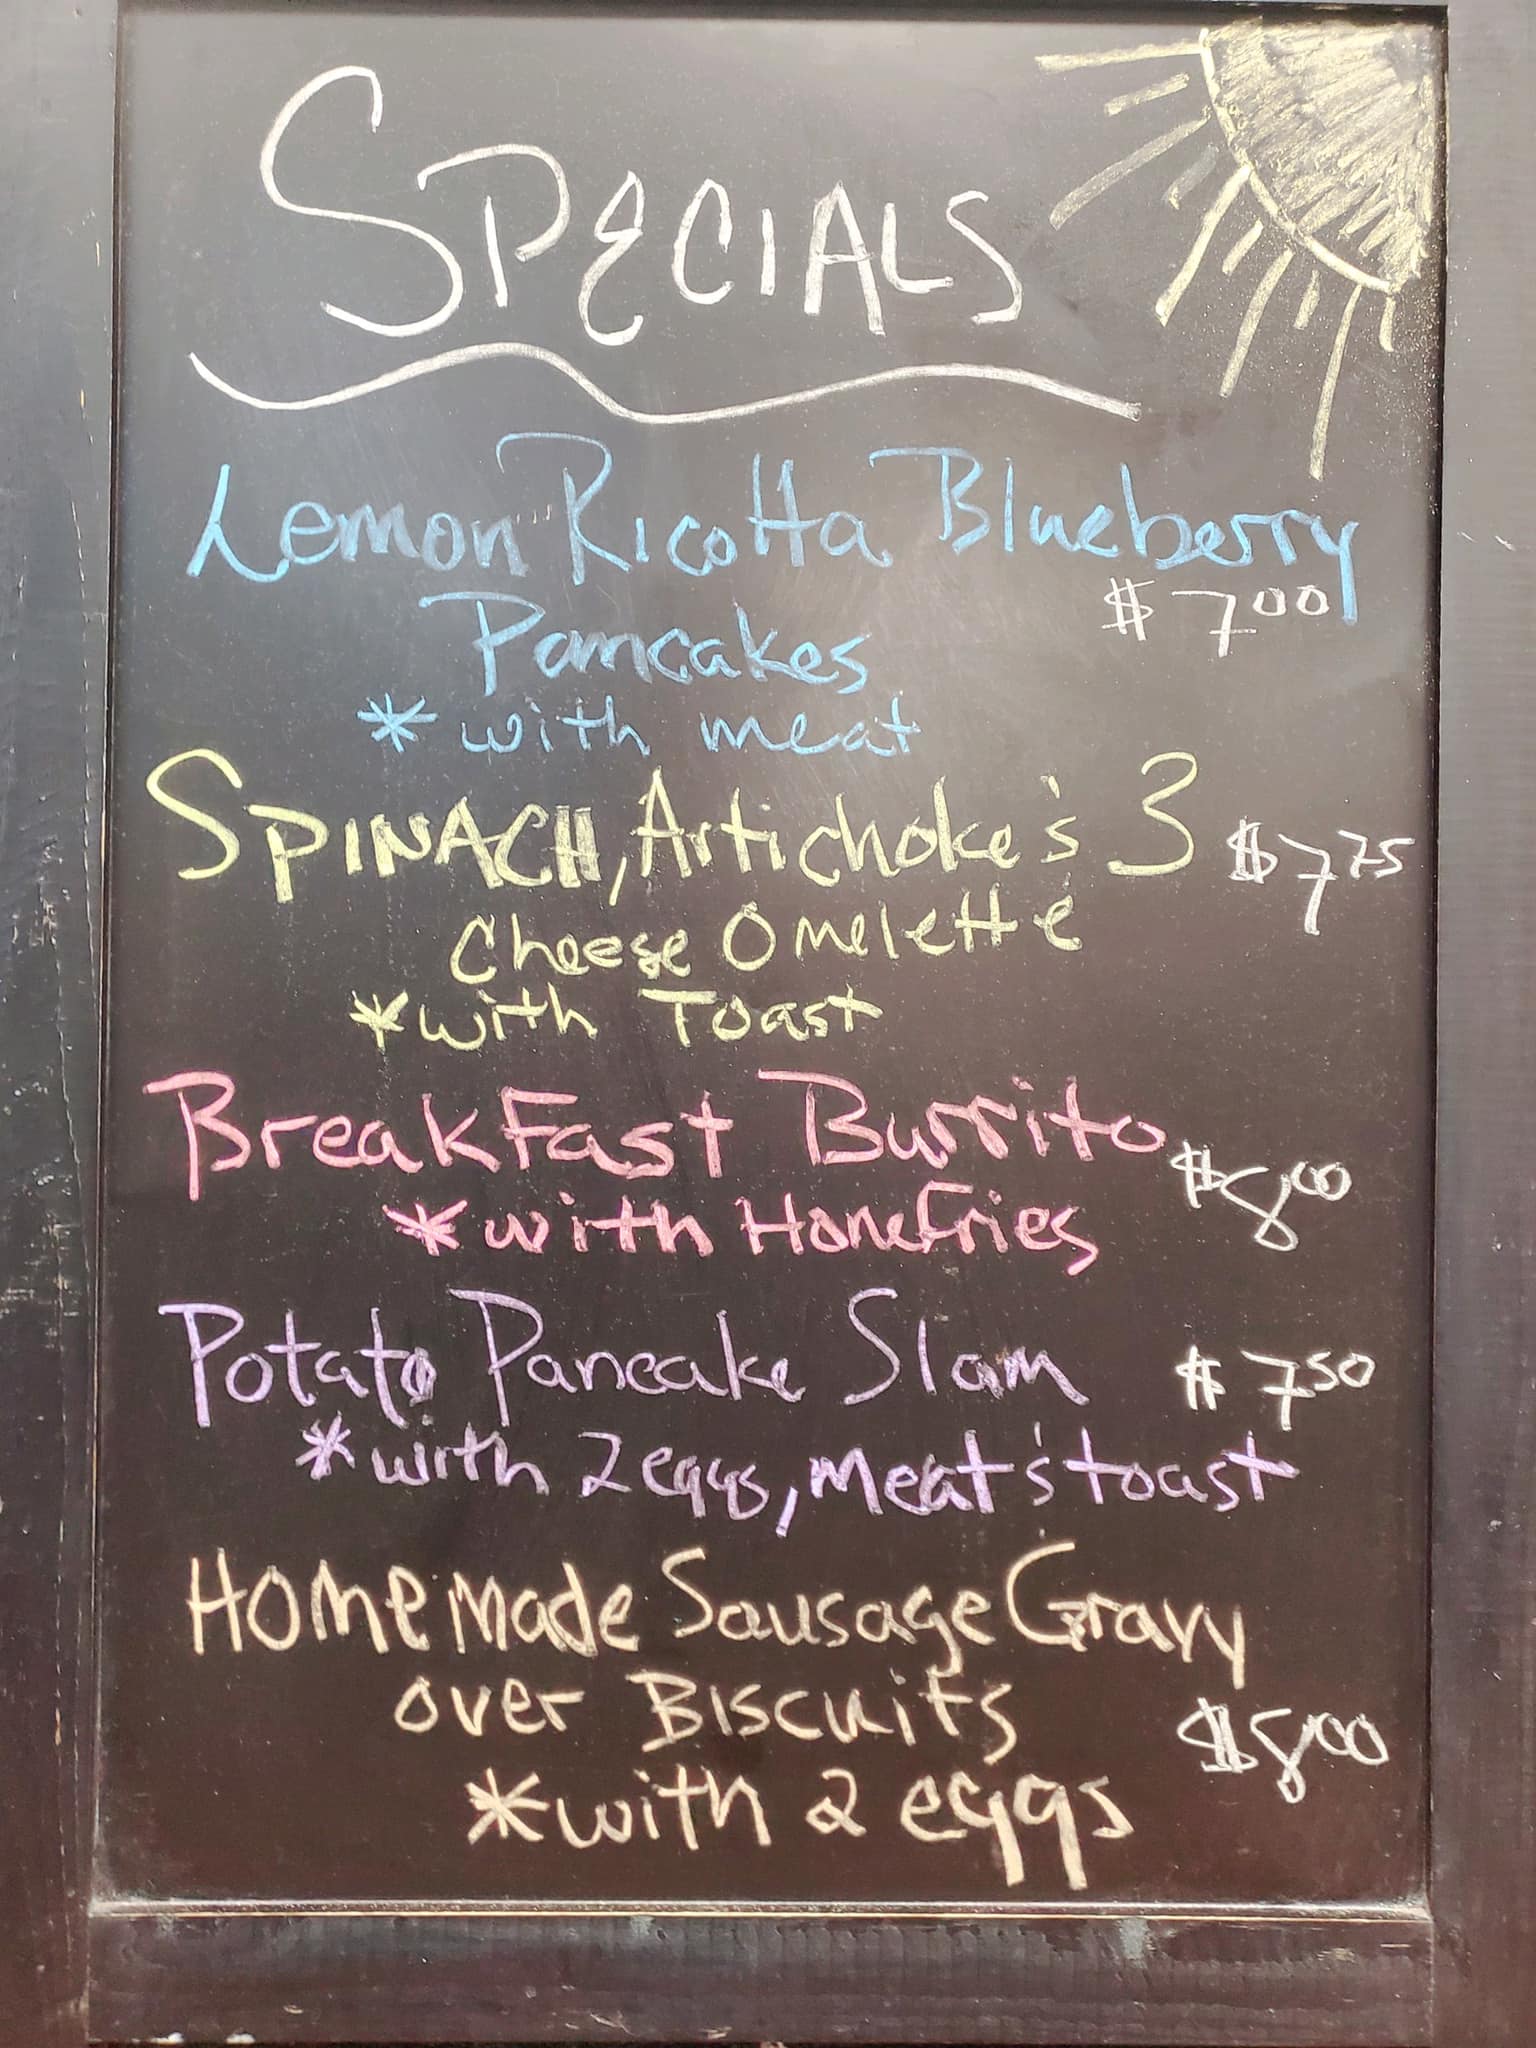 SPECIALS
Lemon Ricotta Blueberry
$ 7.00
Pancakes
* with meat
SPINACH, Artichoke's 3
$7.75
Cheese Omelette
* with Toast
BreakFast Burrito
$8.00
* with HomeFries
Potato Pancake Slam $ 7.50
* with 2 eggs, Meat's toast
HOMemade Sausage Gravy
over BIscuits
$8.00
* with 2 eggs